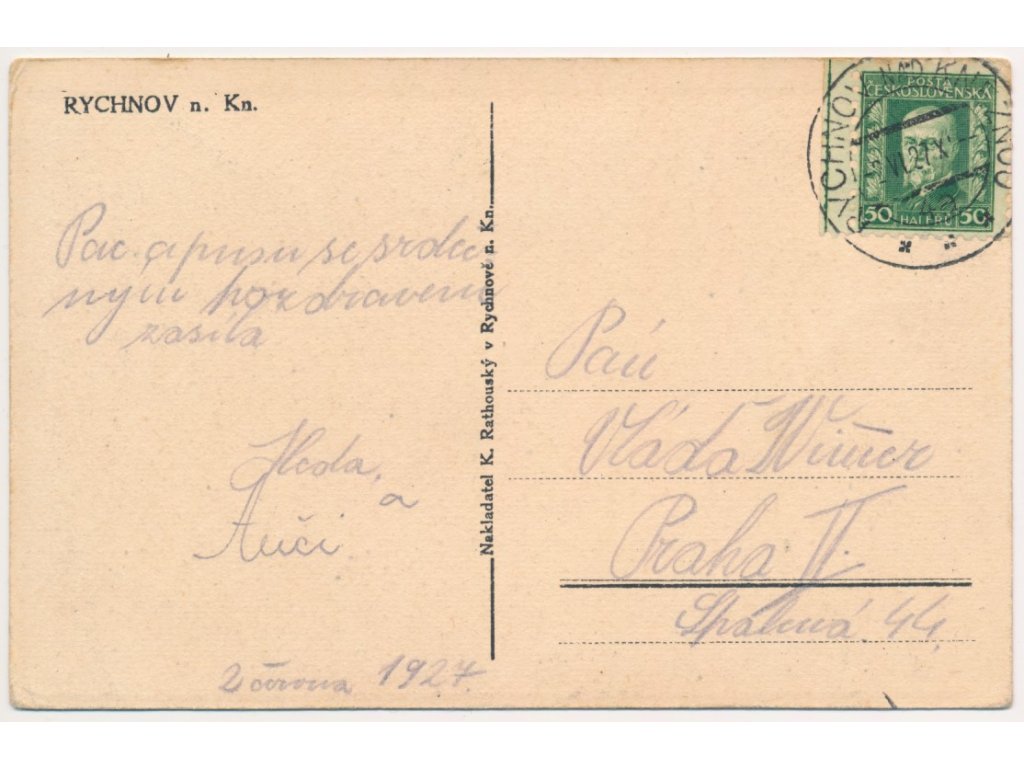 RYCHNOV n. Kn.
POSTA
ČESKOSLOVENSKÁ
50 HALÉŘŮ 50
RYCHNOV NAD KNĚŽNOU
VI.27
Pac. a pusu se srdeč
ným pozdravem
zasílá
Heda,
a
Anči
2 června 1927.
Nakladatel K. Rathouský v Rychnově n. Kn.
Pán
Vláďa Wimer
Praha II.
Spálená 44,